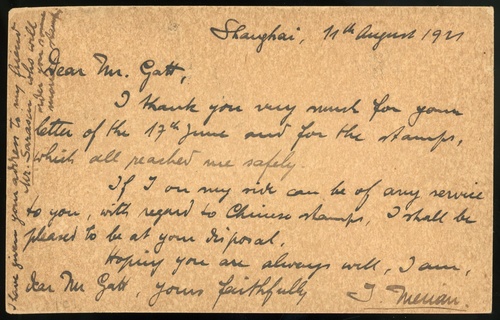 Shanghai, 11th August 1921
Dear Mr. Gatt,
I thank you very much for your
letter of the 17th June and for the stamps,
which all reached me safely.
If I on my side can be of any service
to you, with regard to Chinese stamps, I shall be
pleased to be at your disposal.
Hoping you are always well, I am,
Dear Mr Gatt, yours faithfully
J. Merian.
I have given your address to my friend
Mr. Sarasin who will
order you some
more